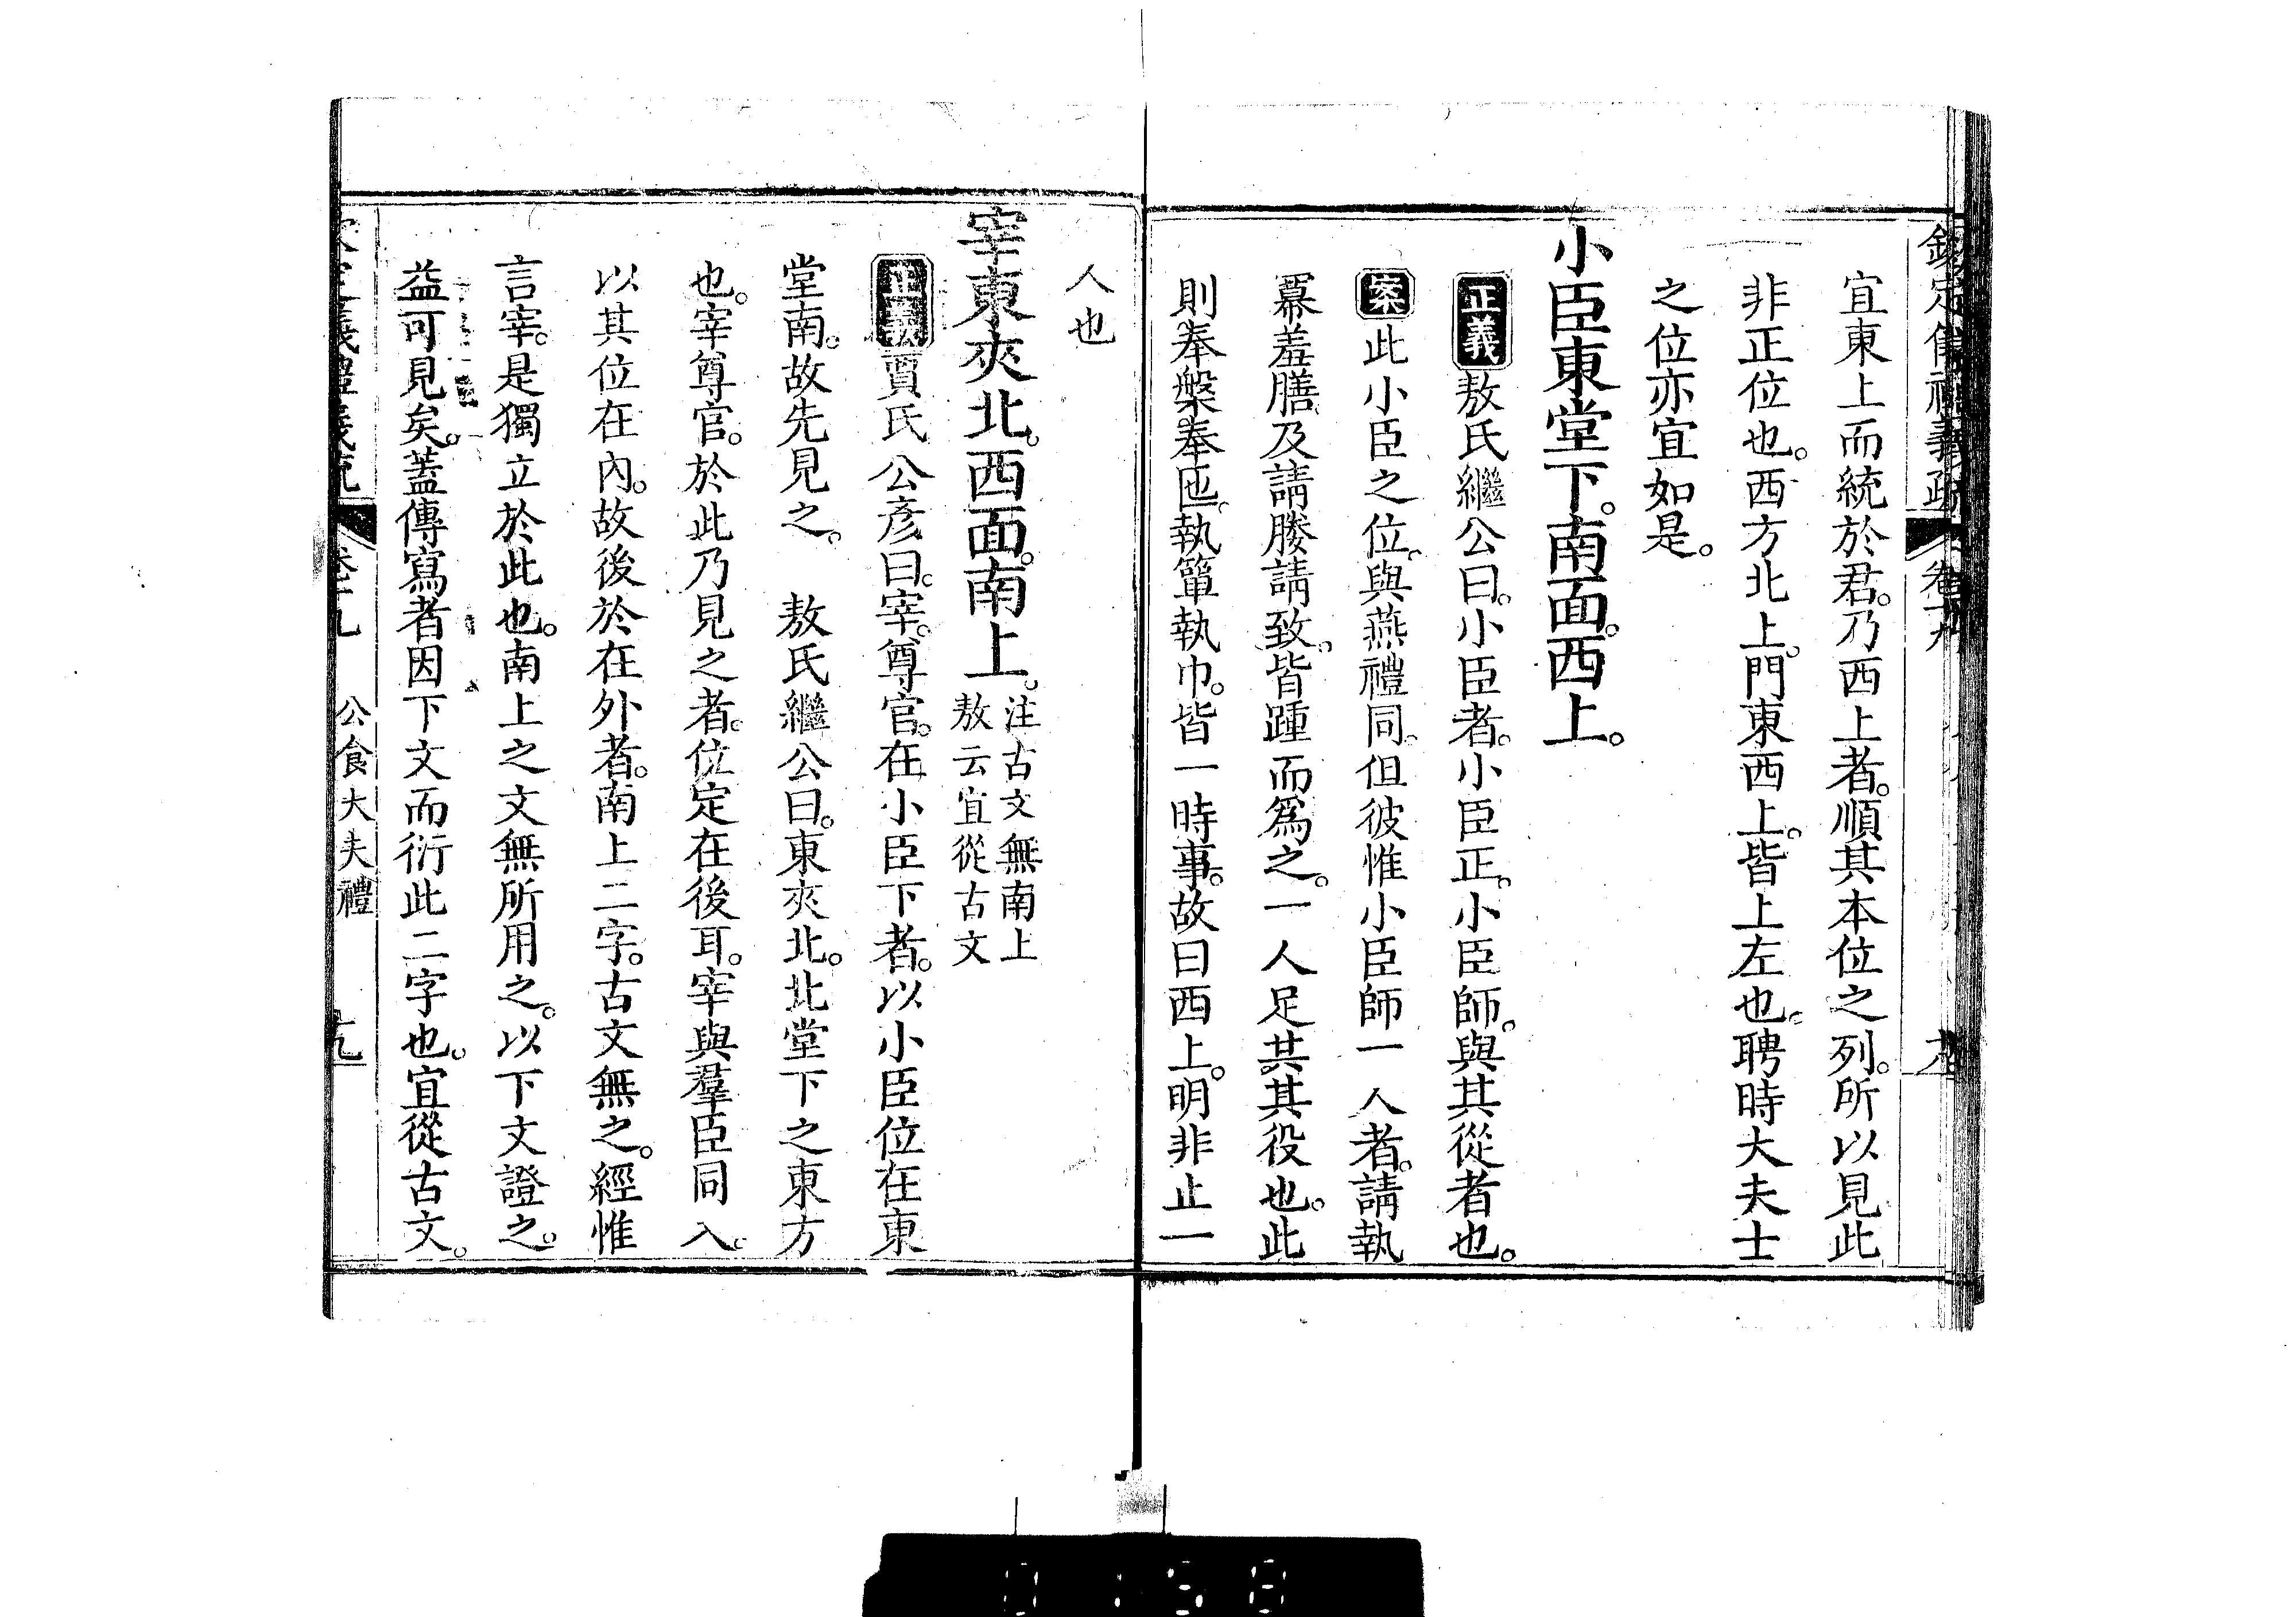 欽定儀禮義疏 卷十九
宜東上而統於君。乃西上者。順其本位之列。所以見此
非正位也。西方北上。門東西上。皆上左也。聘時大夫士
之位亦宜如是。
小臣東堂下。南面。西上。
正義 敖氏繼公曰。小臣者。小臣正。小臣師。與其從者也。
案 此小臣之位。與燕禮同。但彼惟小臣師一人者。請執
冪羞膳及請媵請致。皆踵而爲之。一人足共其役也。此
則奉槃奉匜。執簞執巾。皆一時事。故曰西上。明非止一
人也
宰東夾北。西面。南上。
注古文無南上
敖云宜從古文
正義 賈氏公彥曰。宰。尊官。在小臣下者。以小臣位在東
堂南。故先見之。 敖氏繼公曰。東夾北。北堂下之東方
也。宰尊官。於此乃見之者。位定在後耳。宰與羣臣同入。
以其位在內。故後於在外者。南上二字。古文無之。經惟
言宰。是獨立於此也。南上之文無所用之。以下文證之。
益可見矣。蓋傳寫者因下文而衍此二字也。宜從古文。
公食大夫禮
0158